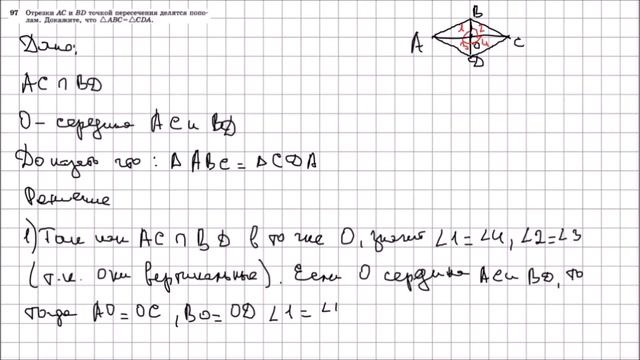 97 Отрезки AC и BD точкой пересечения делятся попо-
лам. Докажите, что △ABC=△CDA.
B
1 2
A O C
3 4
D
Дано:
AC ∩ BD
O - середина AC и BD
Доказать что: △ABC = △CDA
Решение
1) Так как AC ∩ BD в точке O, значит ∠1=∠4, ∠2=∠3
(т.к. они вертикальные). Если O середина AC и BD, то
тогда AO=OC, BO=OD ∠1=∠